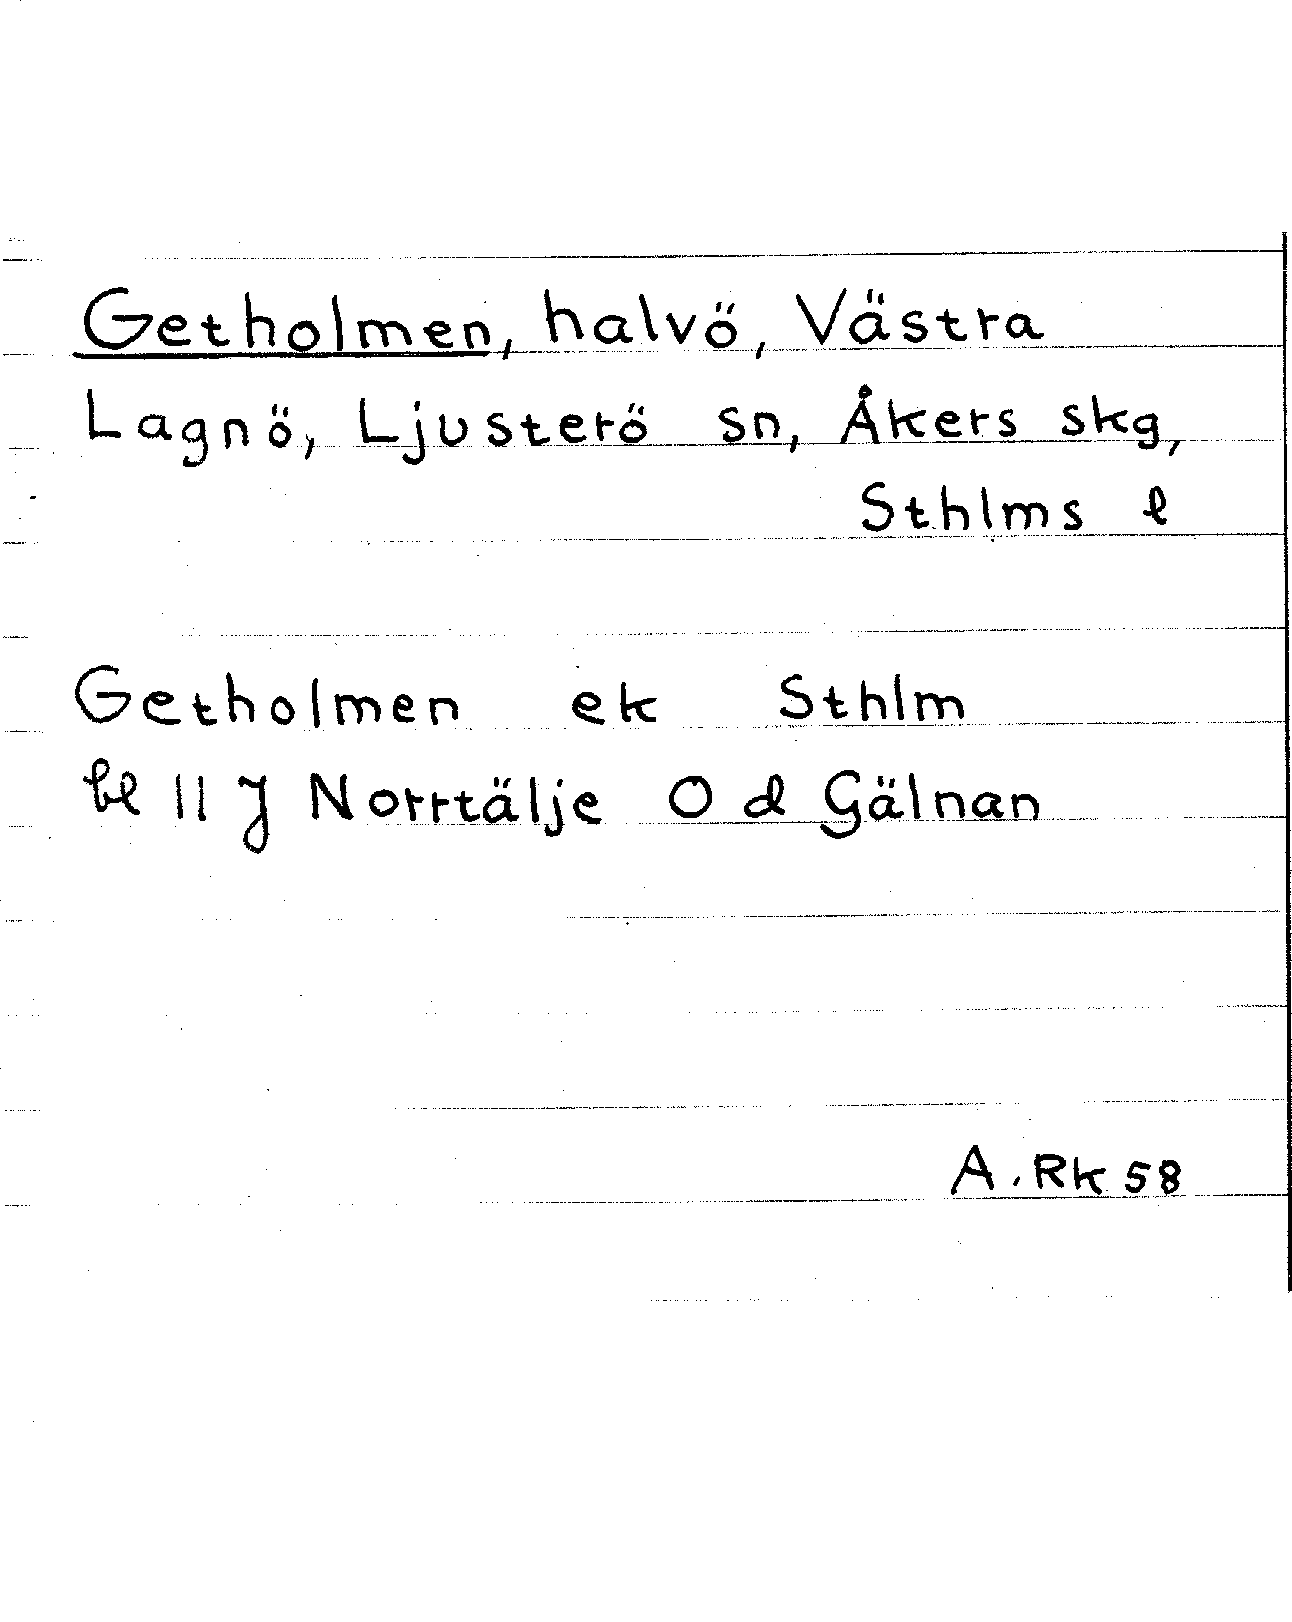 Getholmen, halvö, Västra
Lagnö, Ljusterö sn, Åkers skg,
Sthlms l
Getholmen ek Sthlm
bl 11 J Norrtälje O d Gälnan
A. Rk 58